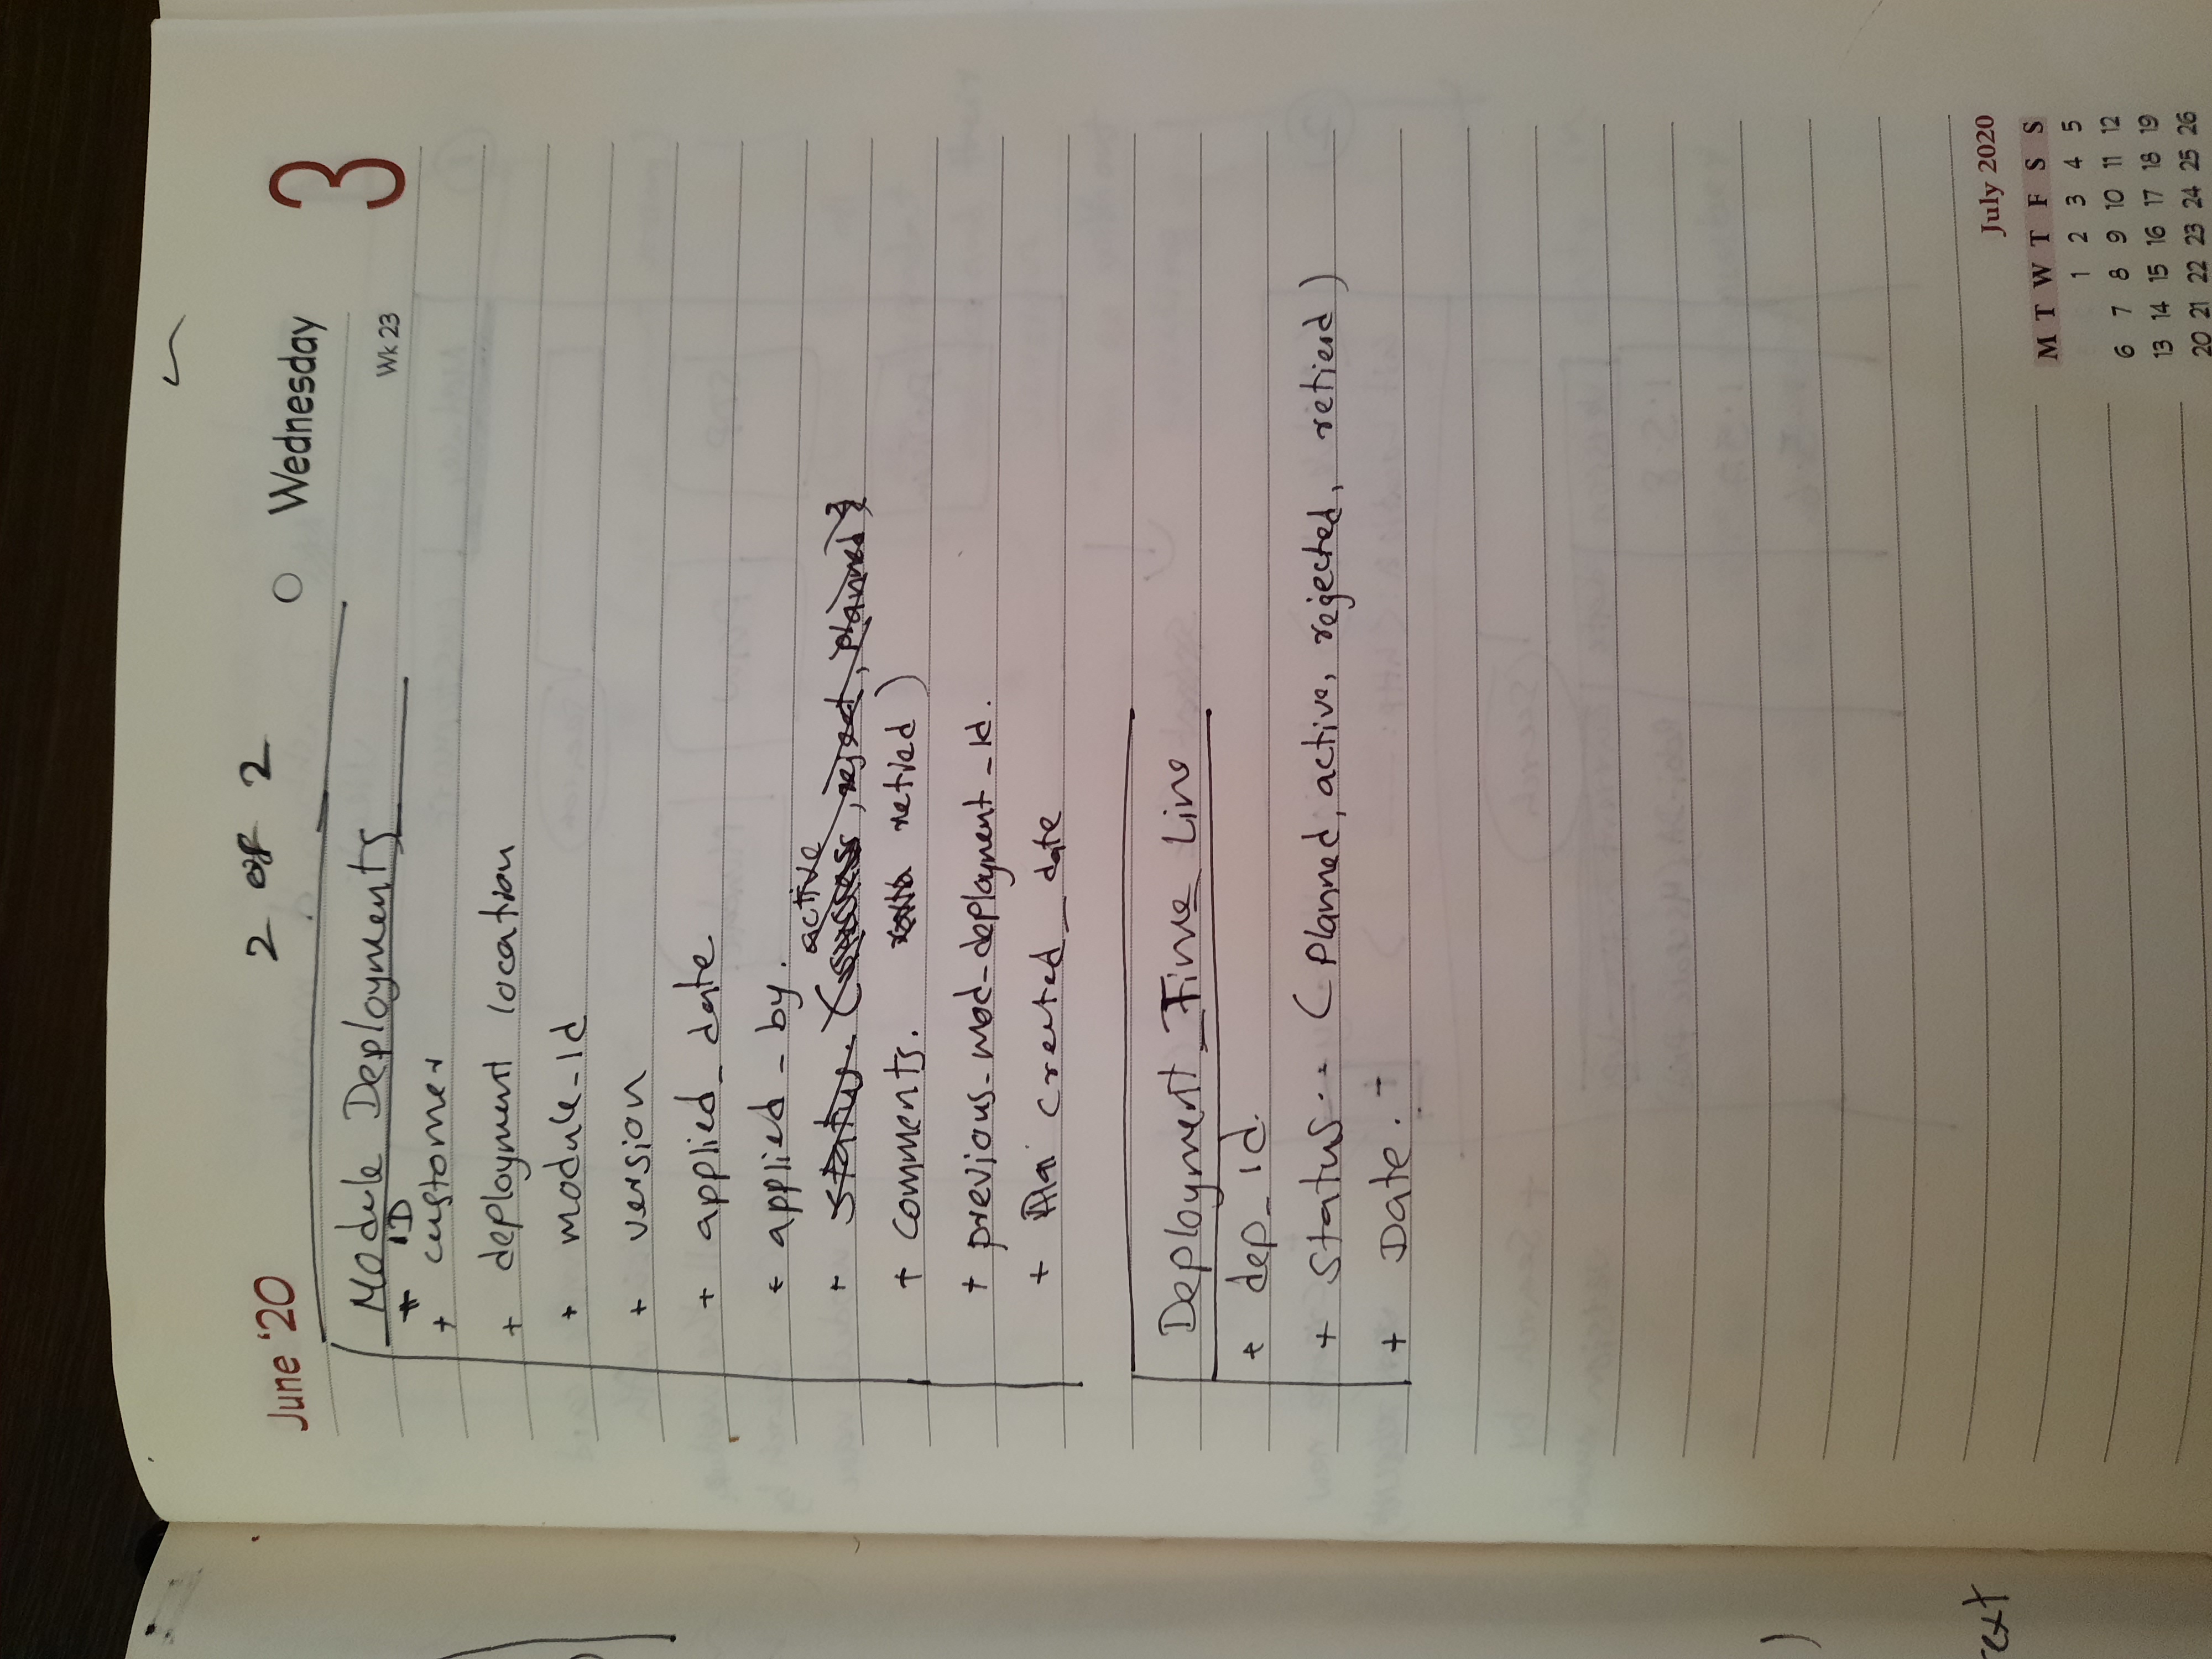 June '20
2 of 2
Wednesday
3
Wk 23
Module Deployments
+ ID
+ customer
+ deployment location
+ module_id
+ version
+ applied_date
+ applied_by.
active
+ status. (success, reject, planned}
+ comments. retied)
+ previous_mod-deployment_id.
+ created_date
Deployment_Time Line
+ dep_id.
+ Status.. (Planned, active, rejected, retierd)
+ Date.
ext
July 2020
M T W T F S S
1 2 3 4 5
6 7 8 9 10 11 12
13 14 15 16 17 18 19
20 21 22 23 24 25 26